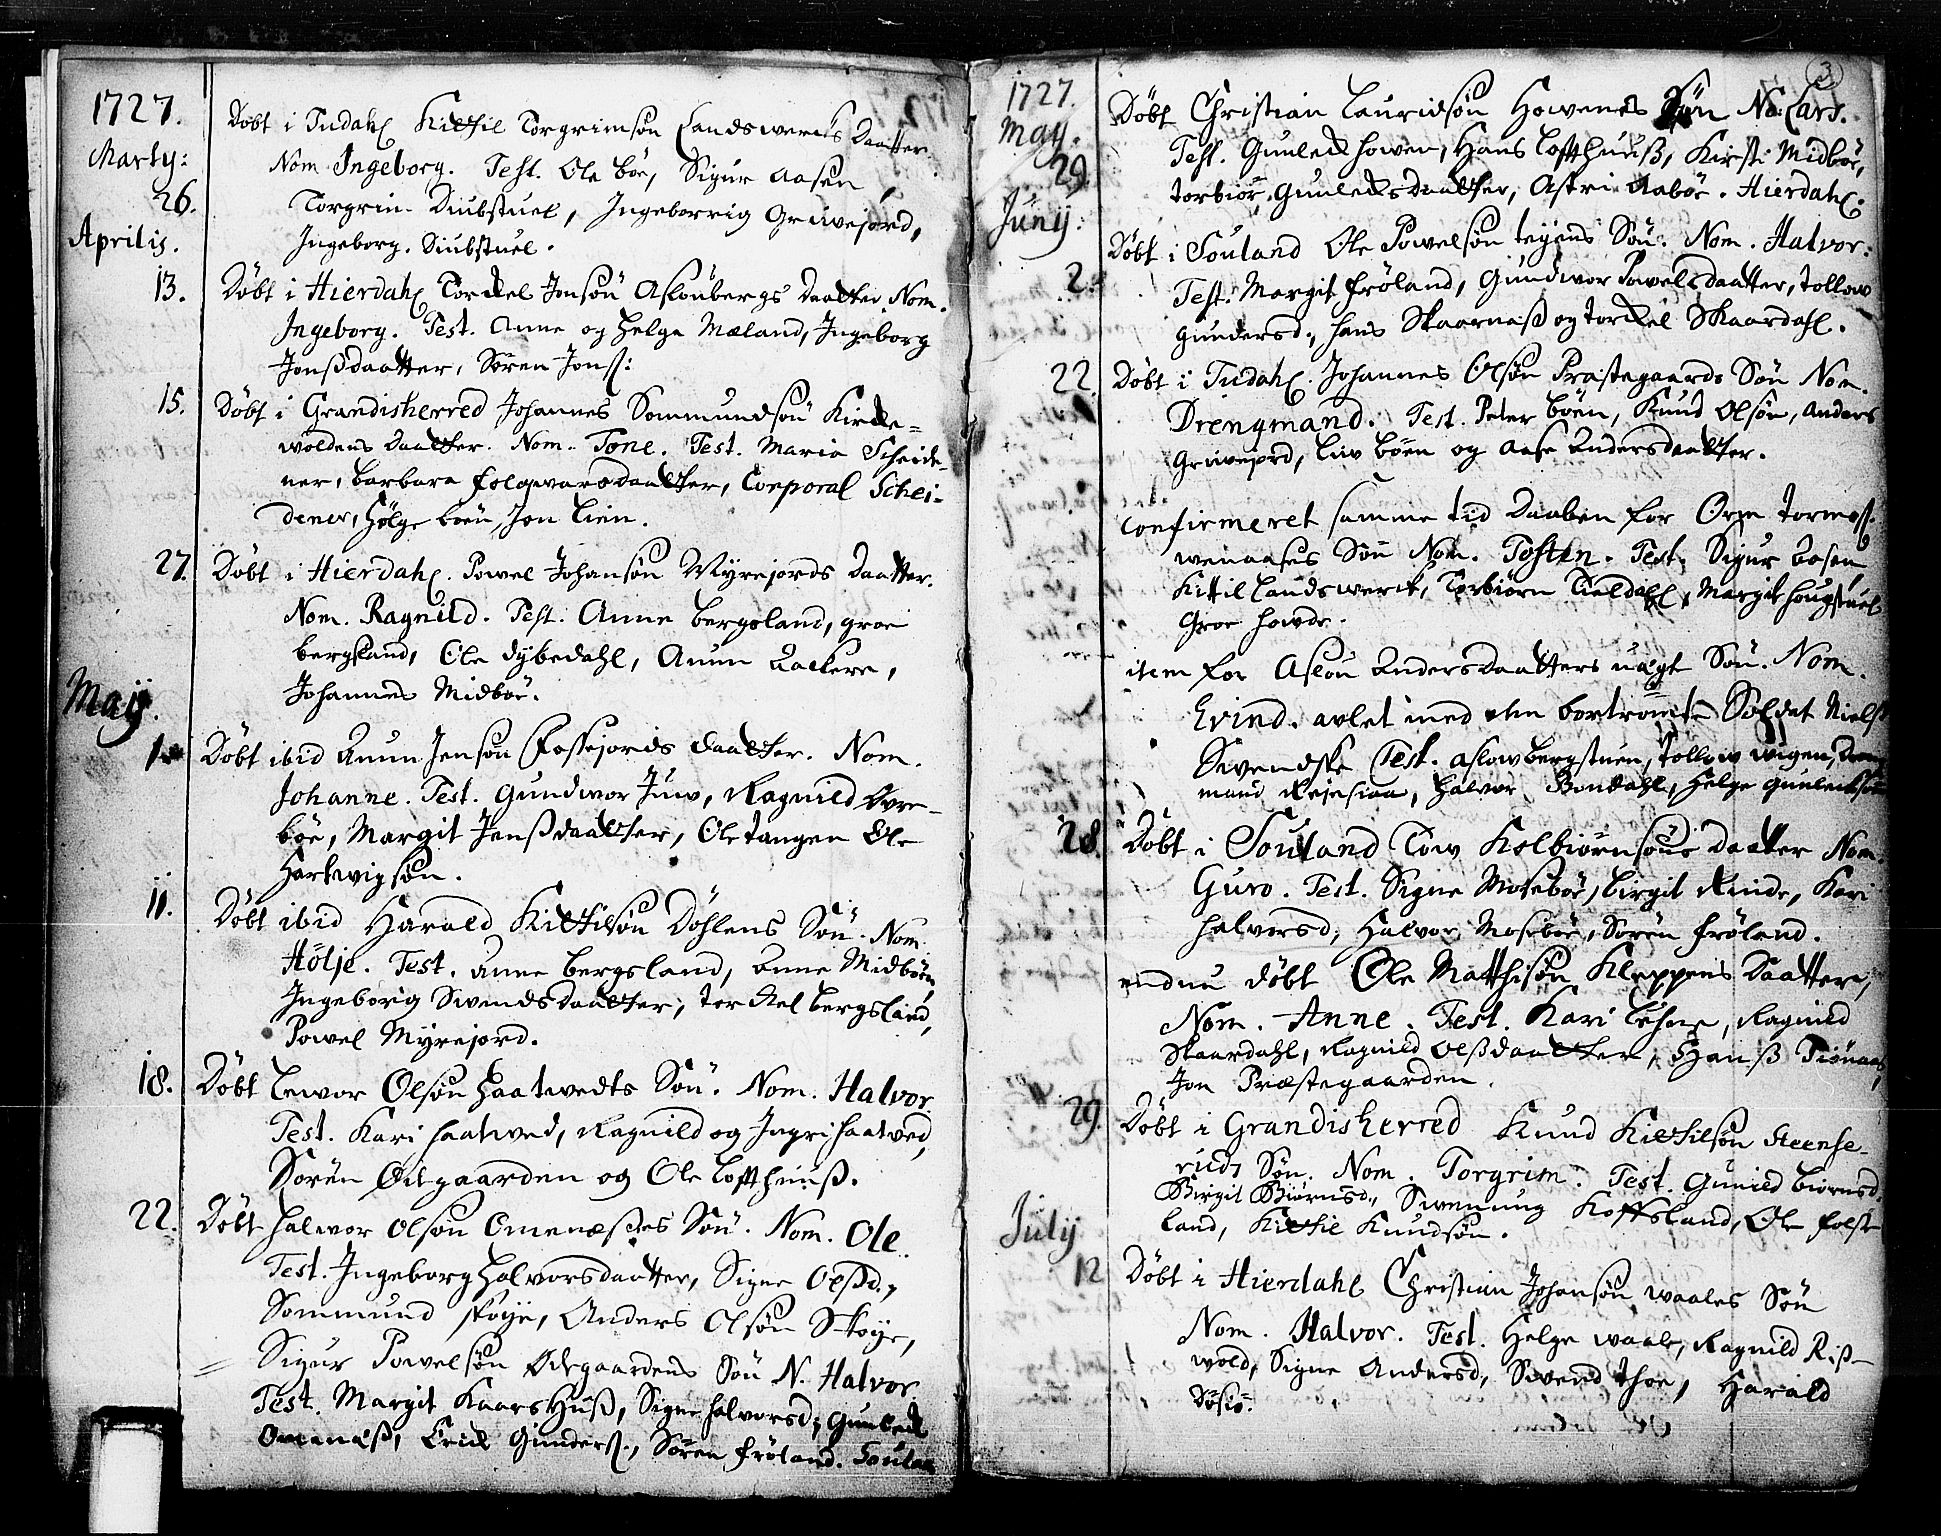 1727.
Marty:
26.
Døbt i Tudahl Kittil Torgrimsøn Landswercks Daatter
Nom Ingeborg. Test. Ole Bøe, Sigur Aasen
Torgrim Diubstuel, Ingeborrig Gruwejord,
Ingeborg. Diubstuel.
Aprilis.
13. Døbt i Hierdahl Torckel Jonsøn Asloubergs Daatter Nom.
Ingeborg. Test. Anne og Helga Mæland, Ingeborg
Jonsdaatter, Søren Jons:
15. Døbt i Grandisherred Johannes Sommundsøn Kircke=
woldens Daatter. Nom. Tone. Test. Maria Scheide-
ner, Barbara Folqwarsdaatter, Corporal Schei-
dener, Hølge Boen, Jon Lien.
27. Døbt i Hierdahl. Powel Johansøn Myrejords Daatter.
Nom. Ragnild. Test. Anne Bergsland, groe
bergsland, Ole Dybedahl, Anun Aackere,
Johannes Midbøe.
Maij.
1. Døbt ibid Anun Jensøn Fossejords Daatter. Nom.
Johanne. Test. Gundwor Juw, Ragnild Øvre-
bøe, Margit Jensdaatter, Ole Tangen Ole
Hartwigsøn.
11. Døbt ibid Harald Kittilsøn Døhlens Søn. Nom.
Høljе. Test. Anne Bergsland, Anne Midbøen,
Ingeborig Swendsdaatter, Torckel Bergsland,
Powel Myrejord.
18. Døbt Lewor Olsøn Haatwedts Søn. Nom. Halvor
Test. Kari Haatwed, Ragnild og Ingri Haatwed,
Søren Ødegaarden og Ole Loffthuuß.
22. Døbt Halwor Olsøn Omenæsses Søn. Nom. Ole.
Test. Ingeborg Halvorsdaatter, Signe Olsd.,
Sommund Skoye, Anders Olsøn Skoye,
Sigur Powelsøn Ødegaardens Søn N. Halvor
Test. Margit Kaarshuß, Signe Halvorsd; Gunleck
Omenæß, Erick Gunders., Søren Frøland. Souland
3
1727.
May.
29
Døbt Christian Lauridsøn Howenes Søn No. Lars.
Test. Gunleck Howen, Hans Loffthuuß, Kirsti Midbøe,
Torbiør Gunlecksdaatter, Astri Aabøe. Hierdahl.
Junij:
2. Døbt i Souland Ole Powelsøn Teyens Søn. Nom. Halvor:
Test. Margit Frøland, Gundwor Powelsdaatter, Tollow
Gundersd., Hans Skaarnaß og Torckel Skaardahl.
22. Døbt i Tudahl. Johannes Olsøn Præstegaards Søn Nom.
Drengmand. Test. Peter Bøen, Knud Olsøn, Anders
Gruwejord, Liv Bøen og Aase Andersdaatter.
Confirmeret samme tid Daaben for Orm Tormoss.
wenaases Søn Nom. Tosten. Test. Sigur Aasen
Kittil Landswerck, Torbiørn Tieldahl, Margit Hougstuel
Groe Howde.
item for Aslou Andersdaatters uægt Søn. Nom.
Evind. avlet med den bortrømte Soldat Niels
Swendske Test. Aslow bergstuen, Tollow wigen, Dreng
mand Rejesiaa, Halvor Bondahl, Helge Gunlecksøn
28. Døbt i Souland Tow Kolbiørnsøns Daatter Nom.
Guro. Test. Signe Mosebøe, Birgit Rinde, Kari
Halvorsd, Halvor Mosebøe, Søren Frøland.
endnu døbt Ole Matthisøn Kleppens Daatter,
Nom. Anne. Test. Kari Lehne, Ragnild
Skaardahl, Ragnild Olsdaatter, Hanß Tiønaas,
Jon Præstegaarden.
29. Døbt i Grandisherred Knud Kittilsøn Steense-
ruds Søn. Nom. Torgrim. Test. Gunild Biørnsd.
Birgit Biørnsd., Swenung Koffsland, Ole Folse-
land, Kittil Knudsøn.
Julij
12 Døbt i Hierdahl Christian Johansøn Waales Søn
Nom. Halvor. Test. Helge Waale, Ragnild Riß-
wold, Signe Andersd, Swend Thoe, Harald